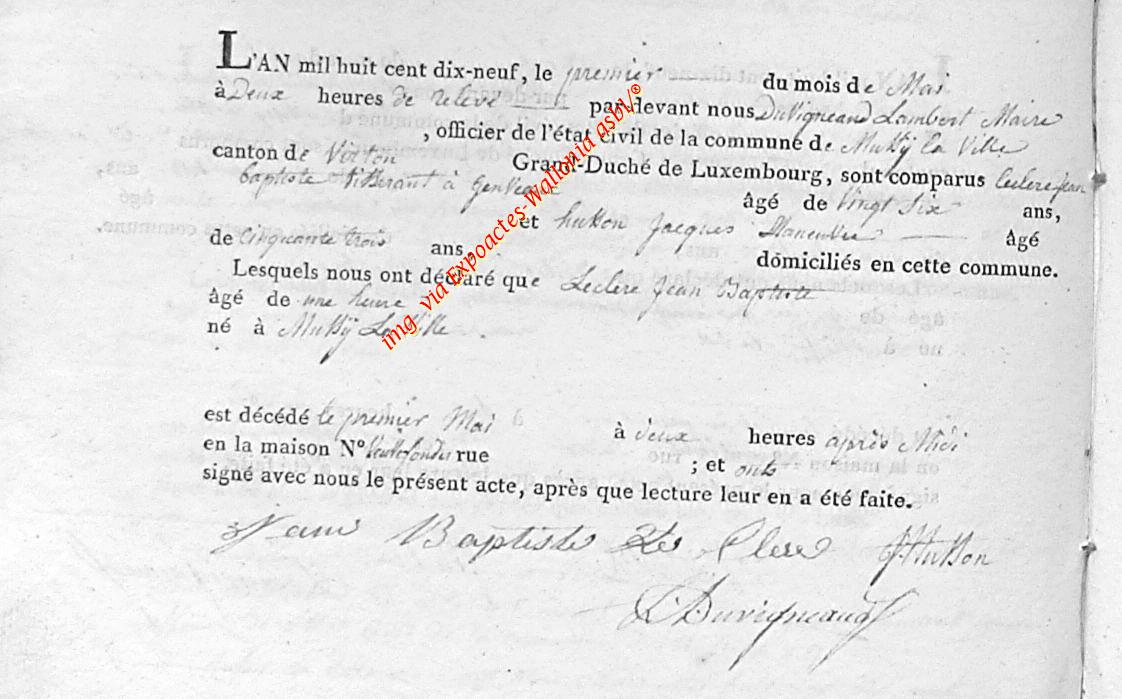 L'AN mil huit cent dix-neuf, le premier du mois de Mai
à Deux heures de relevé par devant nous Duvigneaud Lambert Maire
, officier de l'état civil de la commune de Mussy la Ville
canton de Virton Grand-Duché de Luxembourg, sont comparus Leclere jean
baptiste à âgé de Vingt Six ans,
et husson Jacques Maneuvre âgé
de Cinquante trois ans, domiciliés en cette commune.
Lesquels nous ont déclaré que Leclere Jean Baptiste
âgé de une heure
né à Mussÿ La Ville
est décédé le premier Mai à deux heures après Midi
en la maison N° rue ; et onts
signé avec nous le présent acte, après que lecture leur en a été faite.
Jean Baptiste Le Clere JHusson
LDuvigneaud
img via Expoactes-Wallonia asbl/®